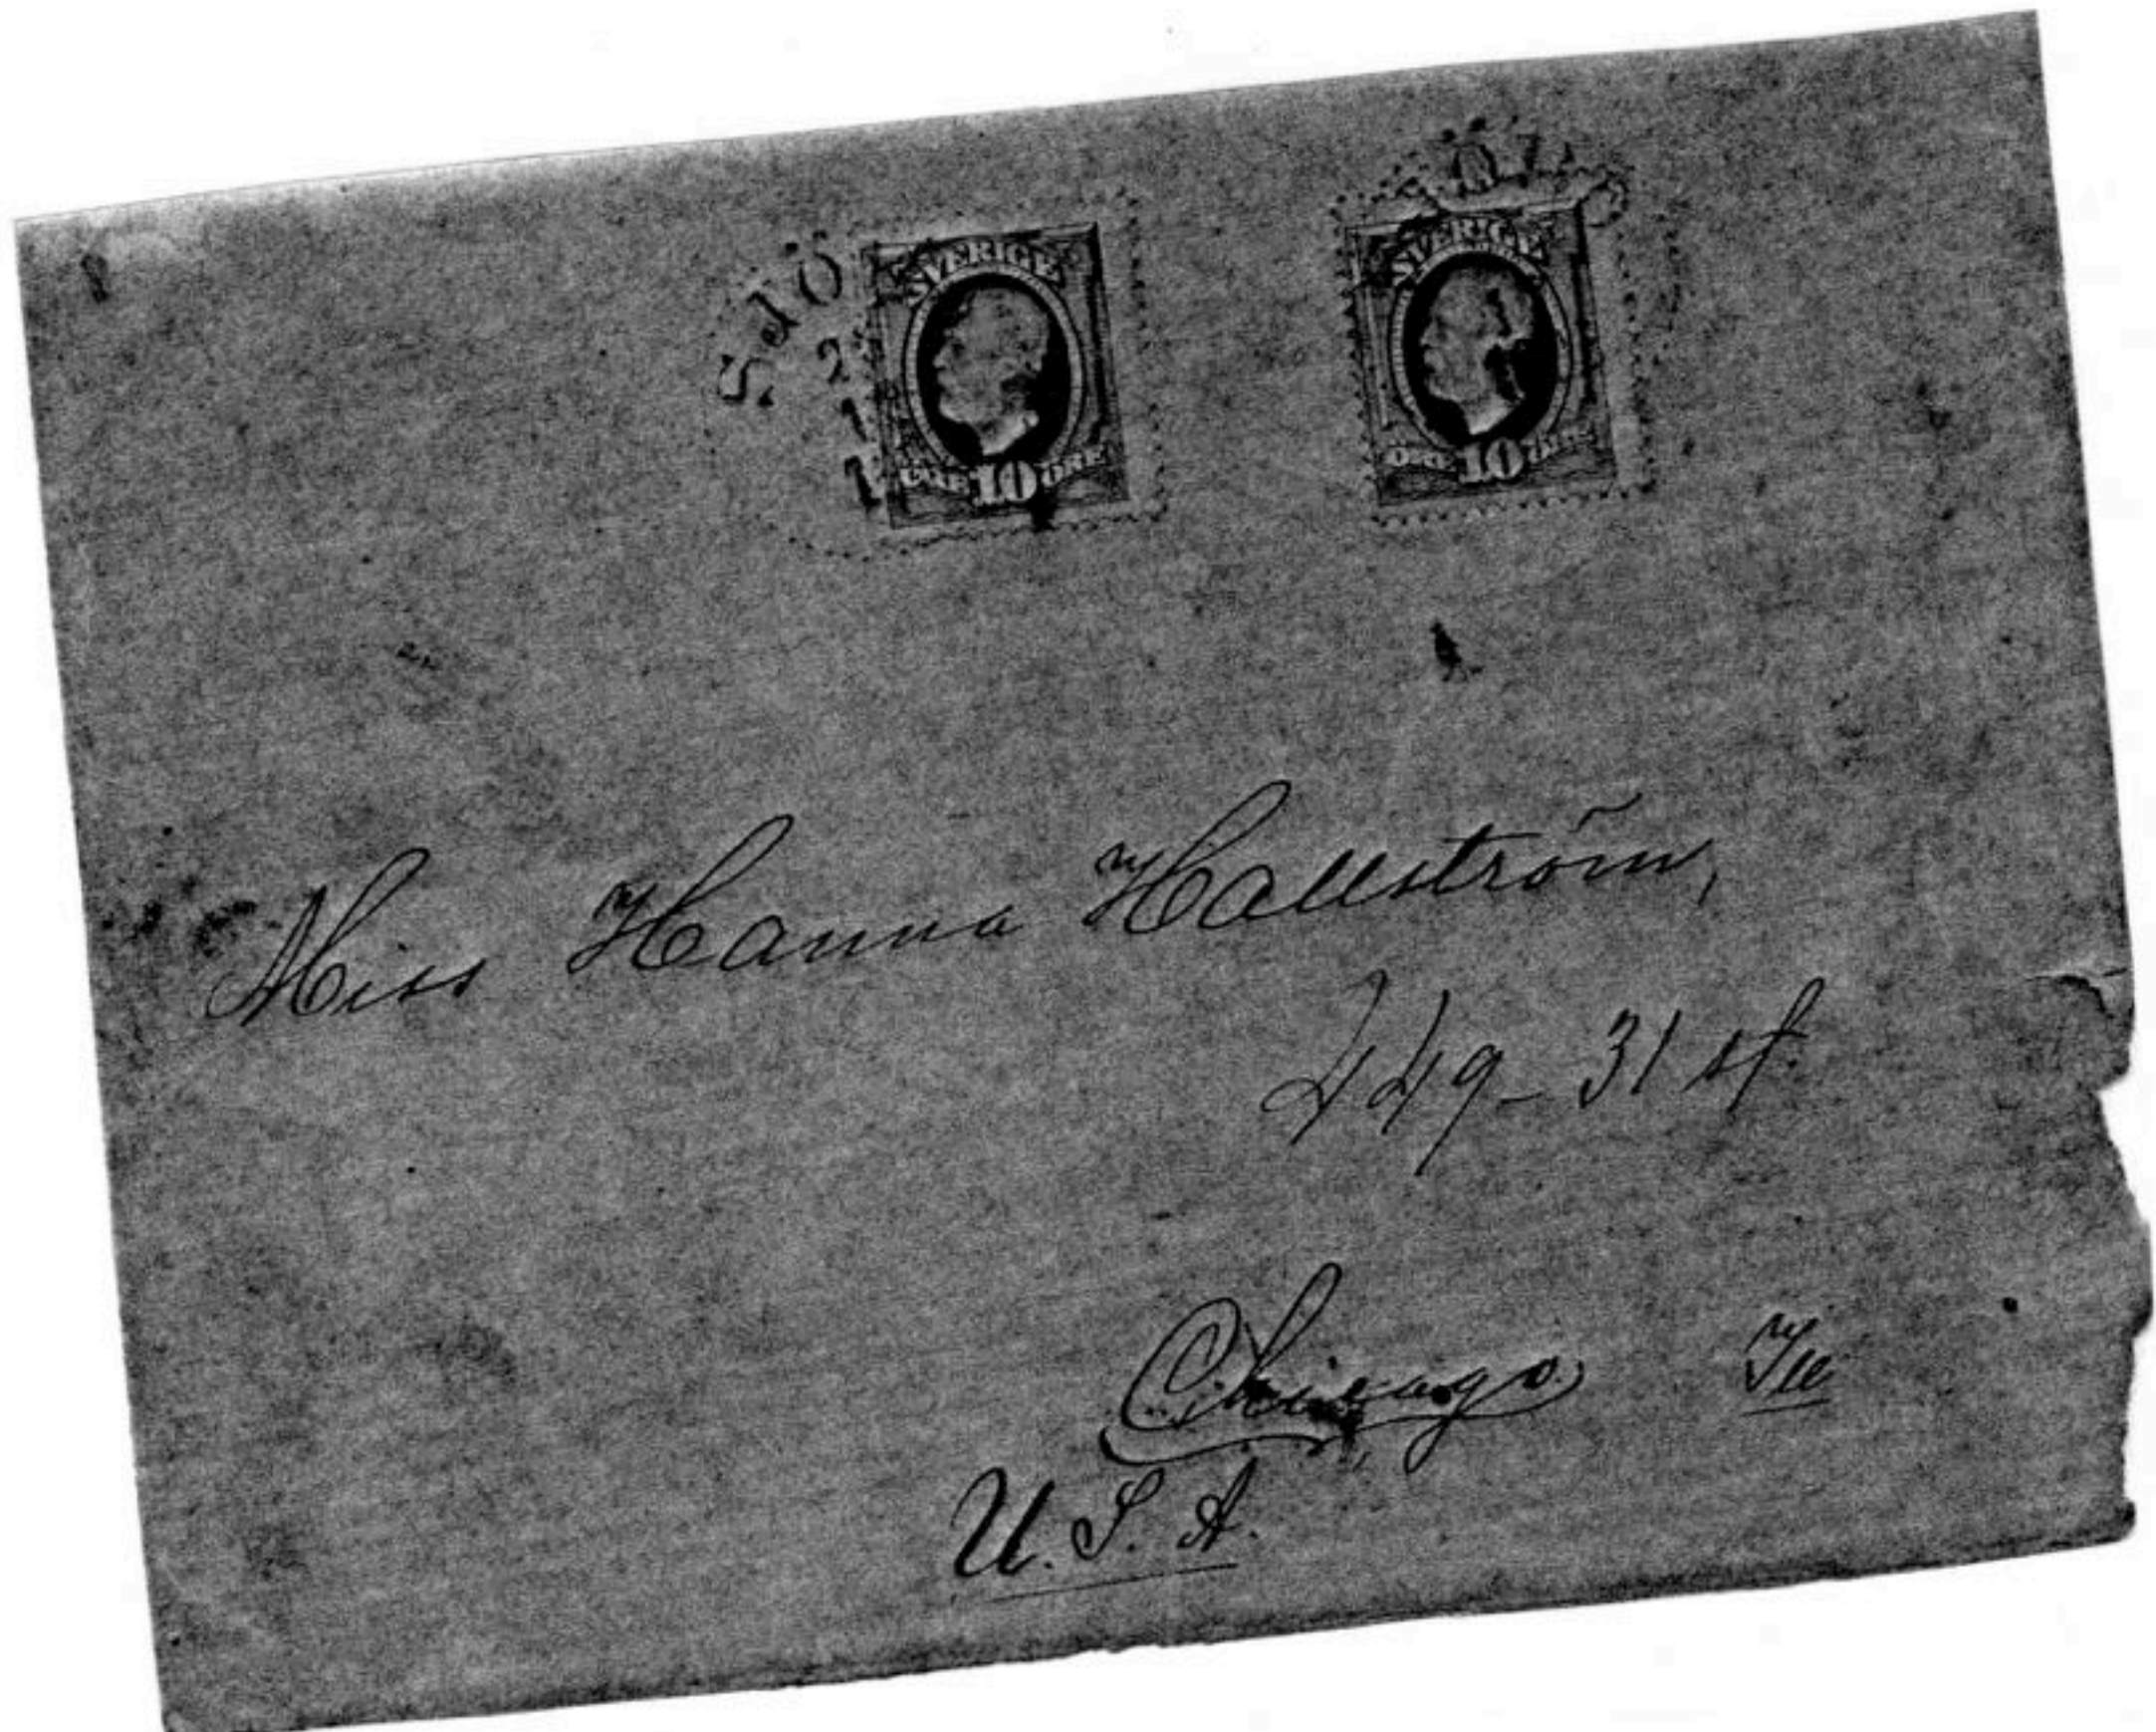 SJÖ
SVERIGE
10 ÖRE
SVERIGE
ÖRE 10 ÖRE
Miss Hanna Hallström,
449 - 31 st.
Chicago Ill
U. S. A.